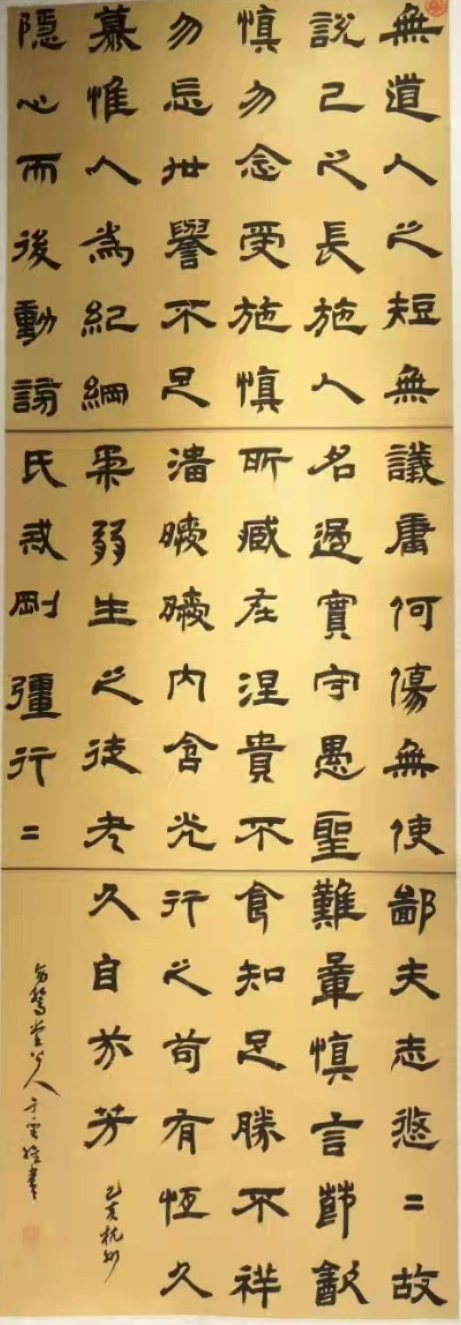 無道人之短無
說己之長施人
慎勿念受施慎
勿忘世譽不足
慕惟人為紀綱
隱心而後動謗
議庸何傷無使
名過實守愚聖
所臧在涅貴不
淄曖曖內含光
柔弱生之徒老
氏戒剛彊行=
鄙夫志悠=故
難量慎言節飲
食知足勝不祥
行之苟有恆久
久自芬芳
己亥杭州